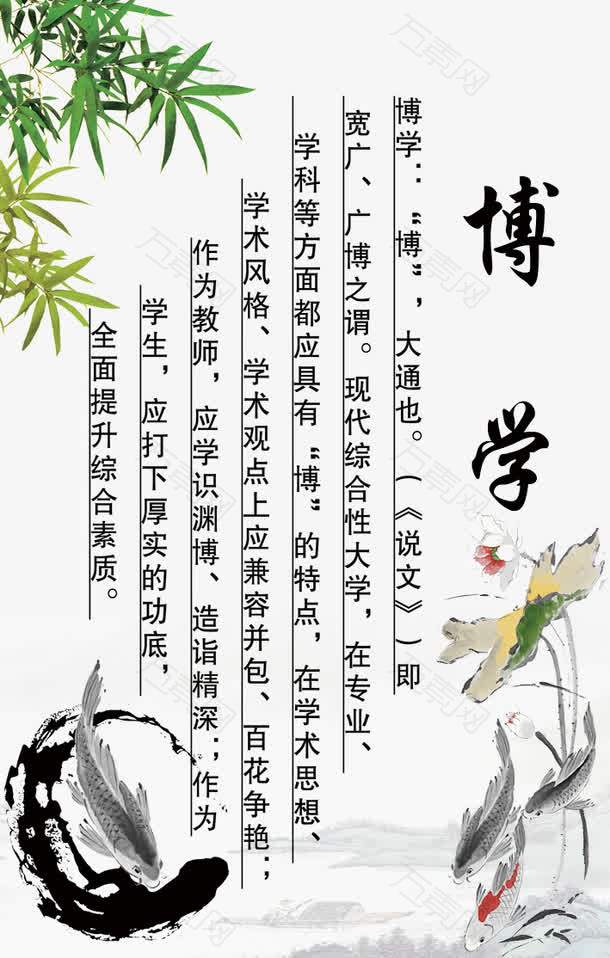 博学
博学：“博”，大通也。（《说文》）即
宽广、广博之谓。现代综合性大学，在专业、
学科等方面都应具有“博”的特点，在学术思想、
学术风格、学术观点上应兼容并包、百花争艳；
作为教师，应学识渊博、造诣精深；作为
学生，应打下厚实的功底，
全面提升综合素质。
万素网